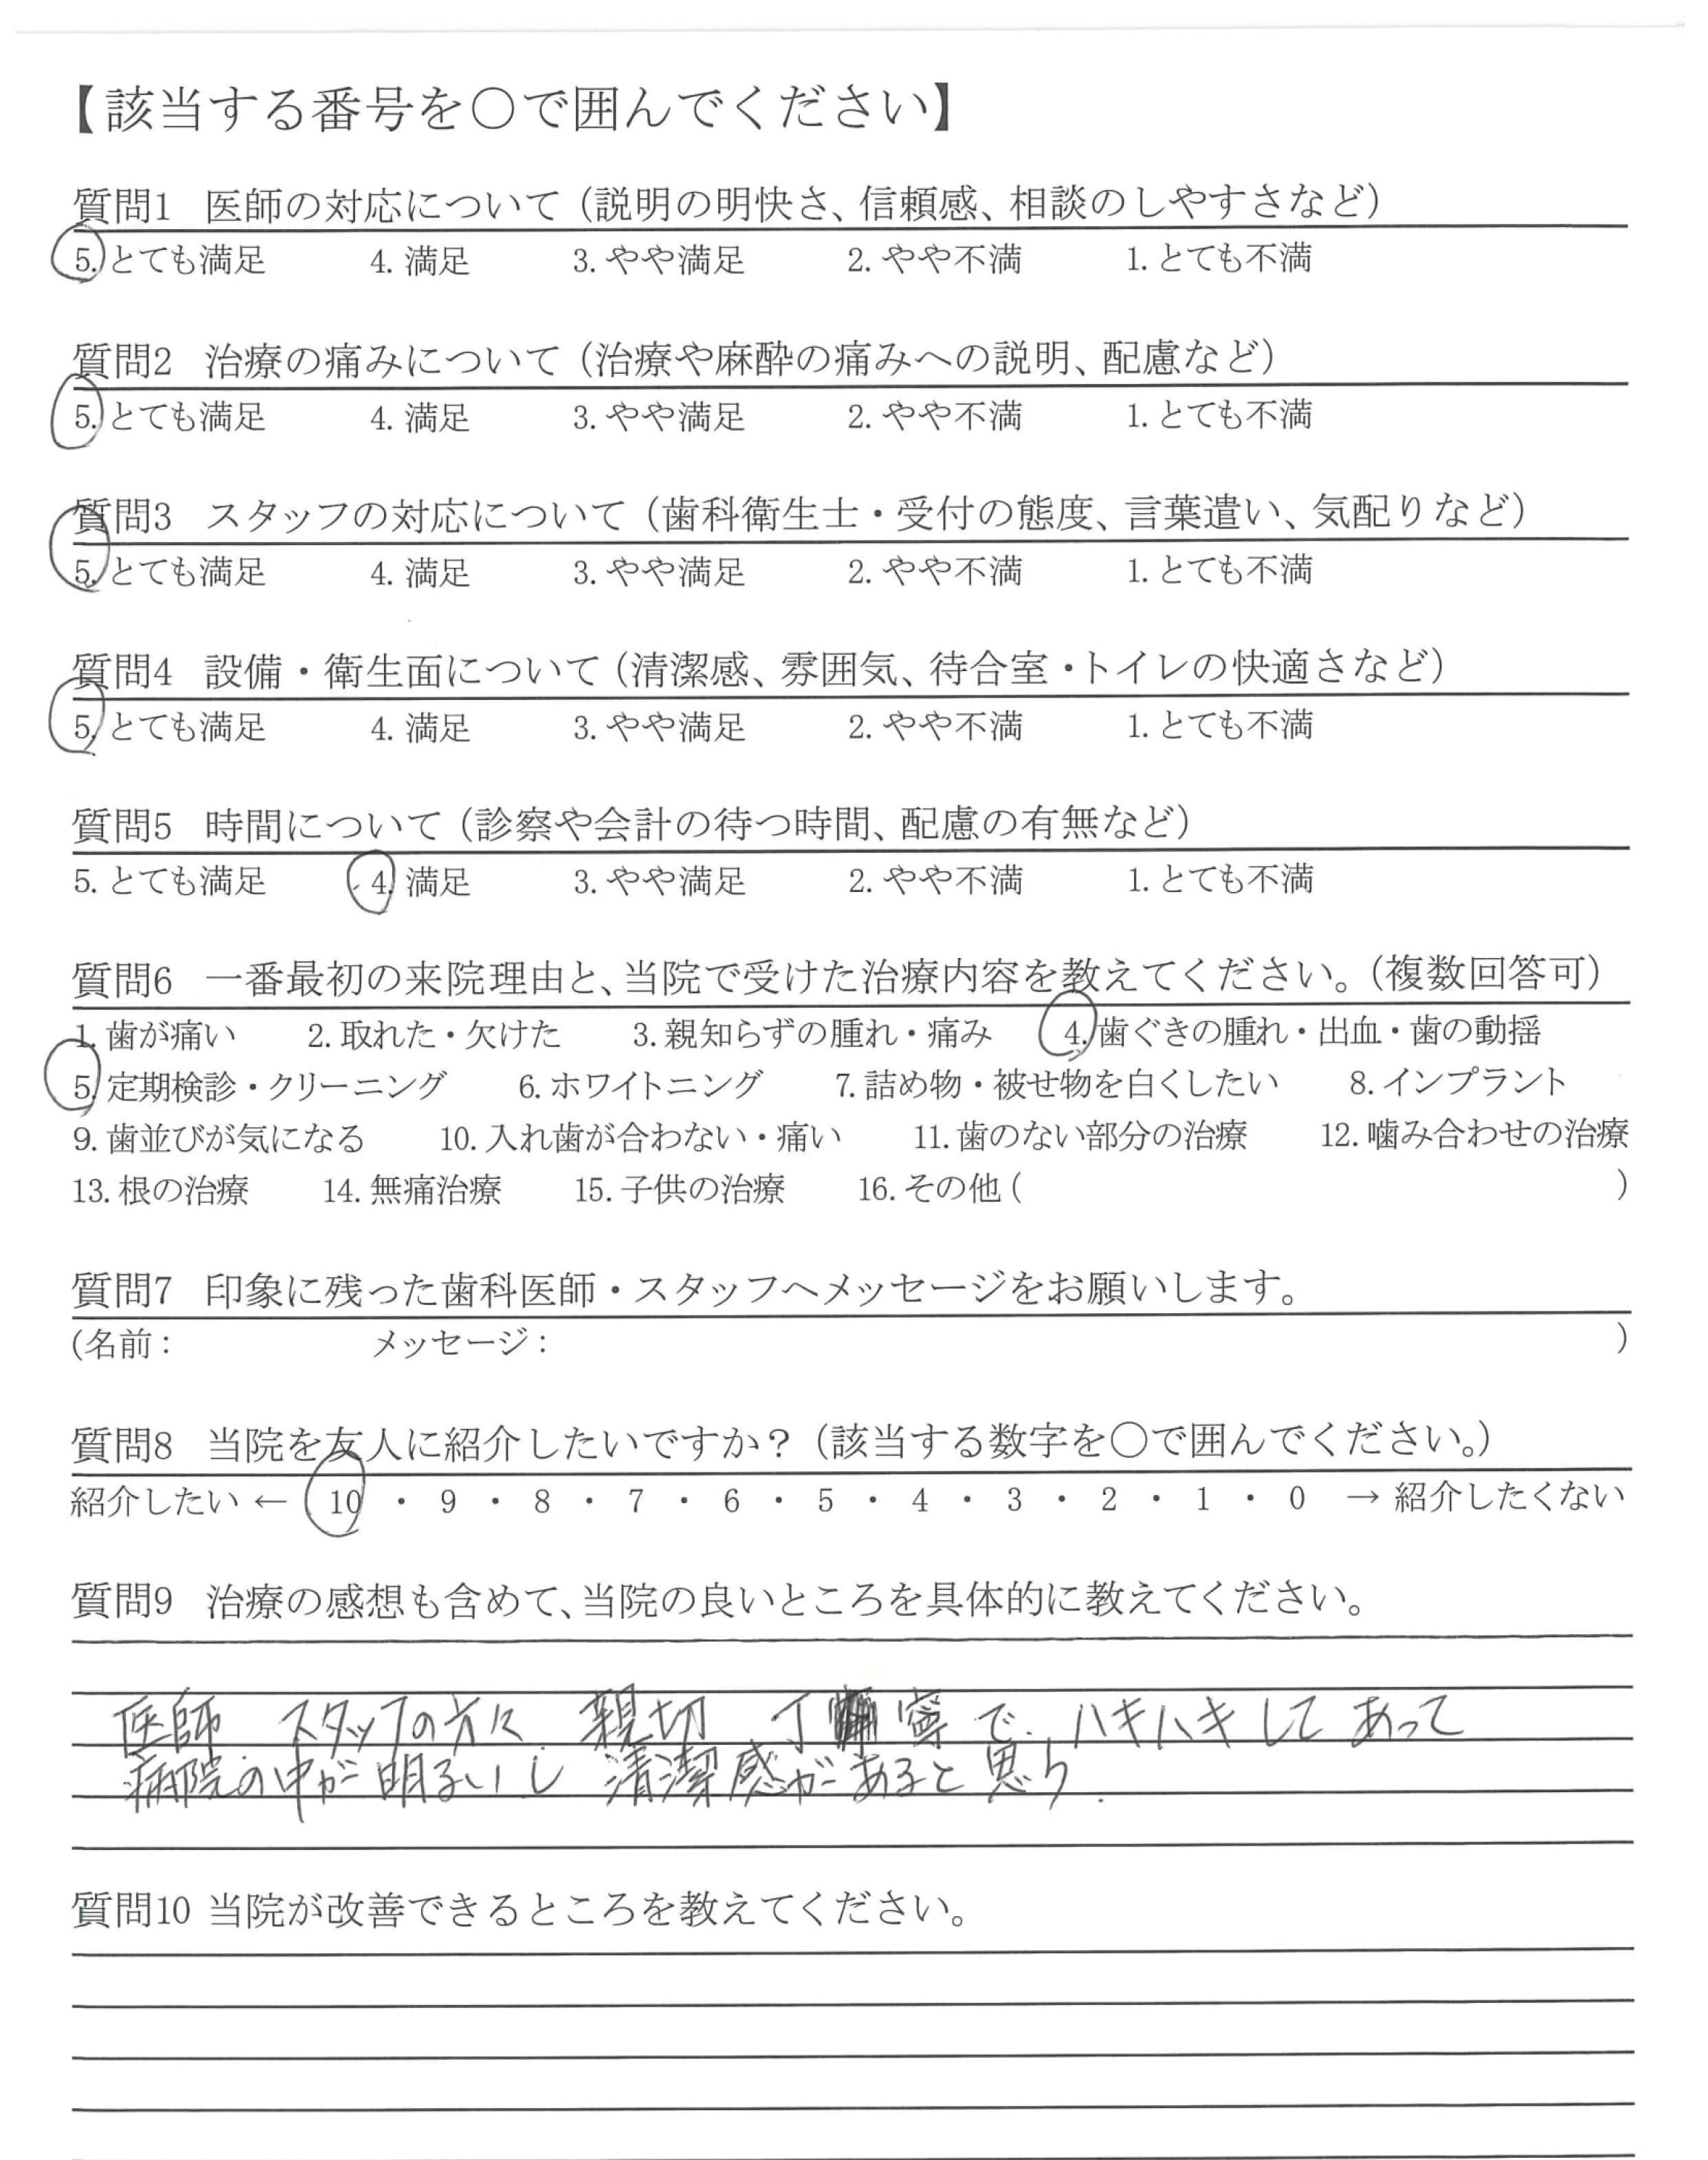 【該当する番号を〇で囲んでください】
質問1 医師の対応について（説明の明快さ、信頼感、相談のしやすさなど）
5. とても満足 4. 満足 3. やや満足 2. やや不満 1. とても不満
質問2 治療の痛みについて（治療や麻酔の痛みへの説明、配慮など）
5. とても満足 4. 満足 3. やや満足 2. やや不満 1. とても不満
質問3 スタッフの対応について（歯科衛生士・受付の態度、言葉遣い、気配りなど）
5. とても満足 4. 満足 3. やや満足 2. やや不満 1. とても不満
質問4 設備・衛生面について（清潔感、雰囲気、待合室・トイレの快適さなど）
5. とても満足 4. 満足 3. やや満足 2. やや不満 1. とても不満
質問5 時間について（診察や会計の待つ時間、配慮の有無など）
5. とても満足 4. 満足 3. やや満足 2. やや不満 1. とても不満
質問6 一番最初の来院理由と、当院で受けた治療内容を教えてください。（複数回答可）
1. 歯が痛い 2. 取れた・欠けた 3. 親知らずの腫れ・痛み 4. 歯ぐきの腫れ・出血・歯の動揺
5. 定期検診・クリーニング 6. ホワイトニング 7. 詰め物・被せ物を白くしたい 8. インプラント
9. 歯並びが気になる 10. 入れ歯が合わない・痛い 11. 歯のない部分の治療 12. 噛み合わせの治療
13. 根の治療 14. 無痛治療 15. 子供の治療 16. その他（ ）
質問7 印象に残った歯科医師・スタッフへメッセージをお願いします。
（名前： メッセージ： ）
質問8 当院を友人に紹介したいですか？（該当する数字を〇で囲んでください。）
紹介したい ← 10 ・ 9 ・ 8 ・ 7 ・ 6 ・ 5 ・ 4 ・ 3 ・ 2 ・ 1 ・ 0 → 紹介したくない
質問9 治療の感想も含めて、当院の良いところを具体的に教えてください。
医師 スタッフの方々 親切 丁寧で ハキハキしてあって
病院の中が明るいし 清潔感があると思う.
質問10 当院が改善できるところを教えてください。